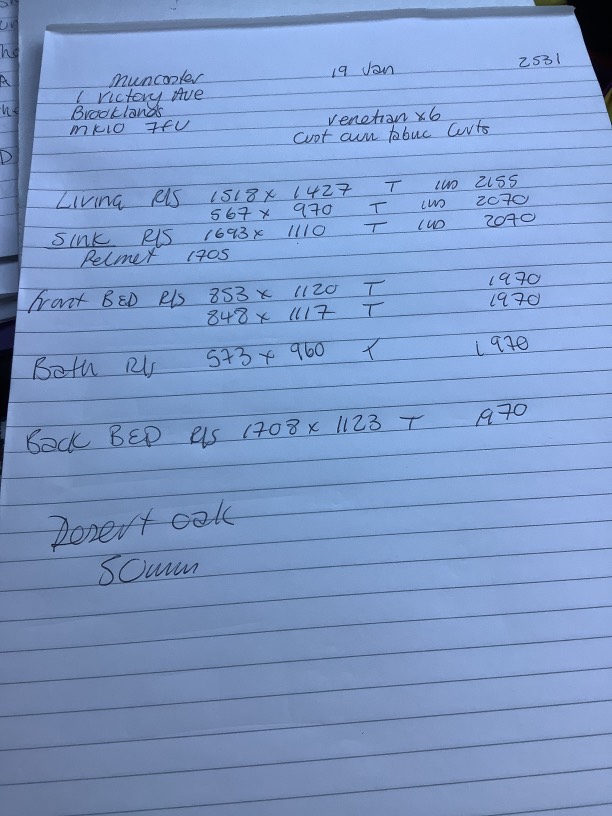 Muncaster
19 Jan
2531
1 Victory Ave
Brooklands
MK10 7FU
Venetian x6
Cust own fabric Curts
Living R/S 1518 x 1427 T 2155
567 x 970 T 2070
Sink R/S 1693 x 1110 T 2070
Pelmet 1705
Front BED R/S 853 x 1120 T 1970
848 x 1117 T 1970
Bath R/S 573 x 960 T 1970
Back BED R/S 1708 x 1123 T 1970
Desert oak
50mm